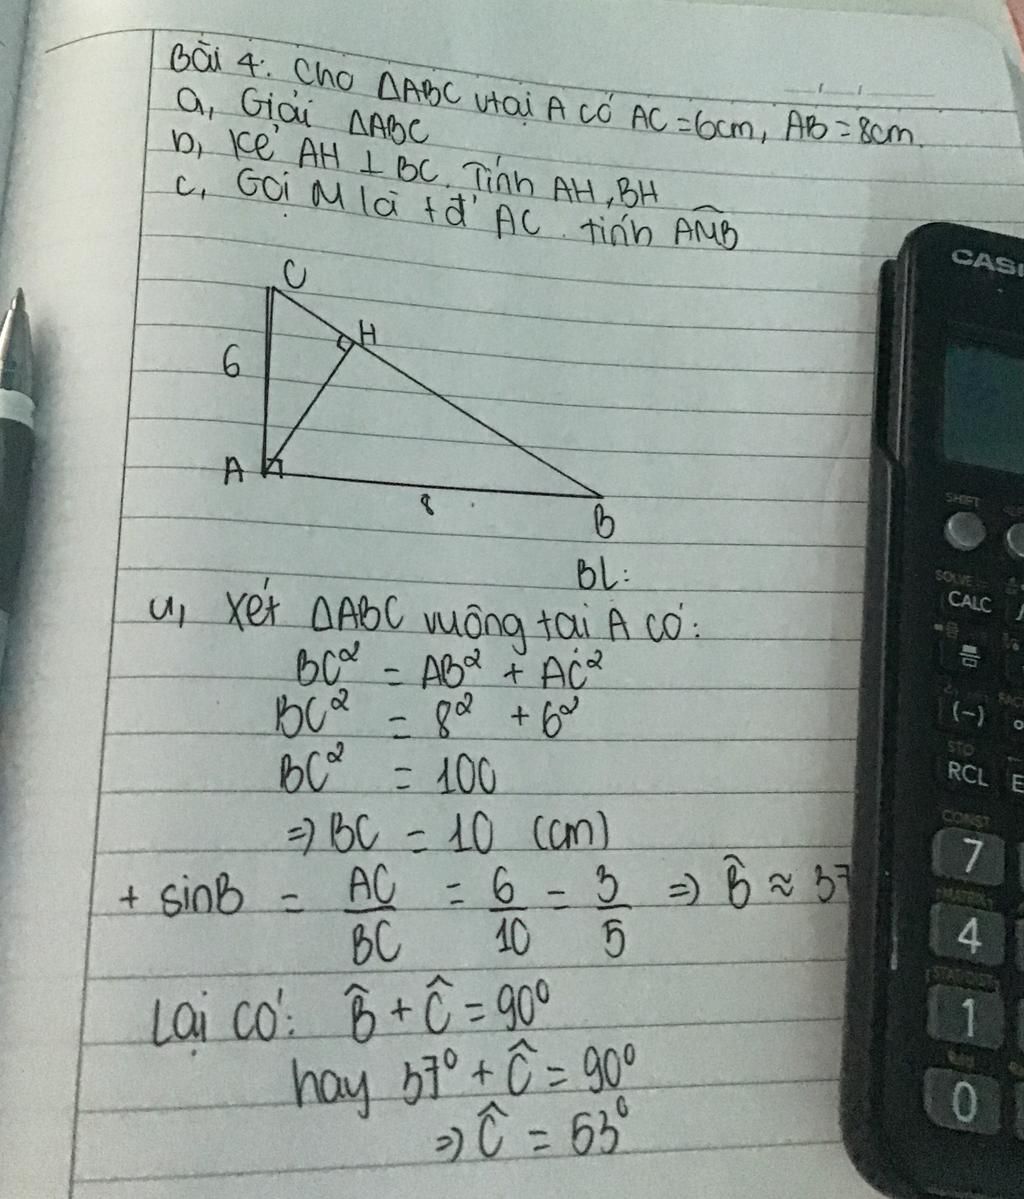 Bài 4: Cho ΔABC vtại A có AC = 6cm, AB = 8cm.
a, Giải ΔABC
b, Kẻ AH ⊥ BC. Tính AH, BH
c, Gọi M là tđ' AC. tính AM̂B
C
H
6
A
8
B
BL:
a, Xét ΔABC vuông tại A có:
BC² = AB² + AC²
BC² = 8² + 6²
BC² = 100
=> BC = 10 (cm)
+ sinB = AC/BC = 6/10 = 3/5 => B̂ ≈ 37
Lại có: B̂ + Ĉ = 90⁰
hay 37⁰ + Ĉ = 90⁰
=> Ĉ = 53⁰
CASI
SHIFT
SOLVE
CALC
(-)
STO
RCL
E
CONST
7
MATRIX
4
1
0